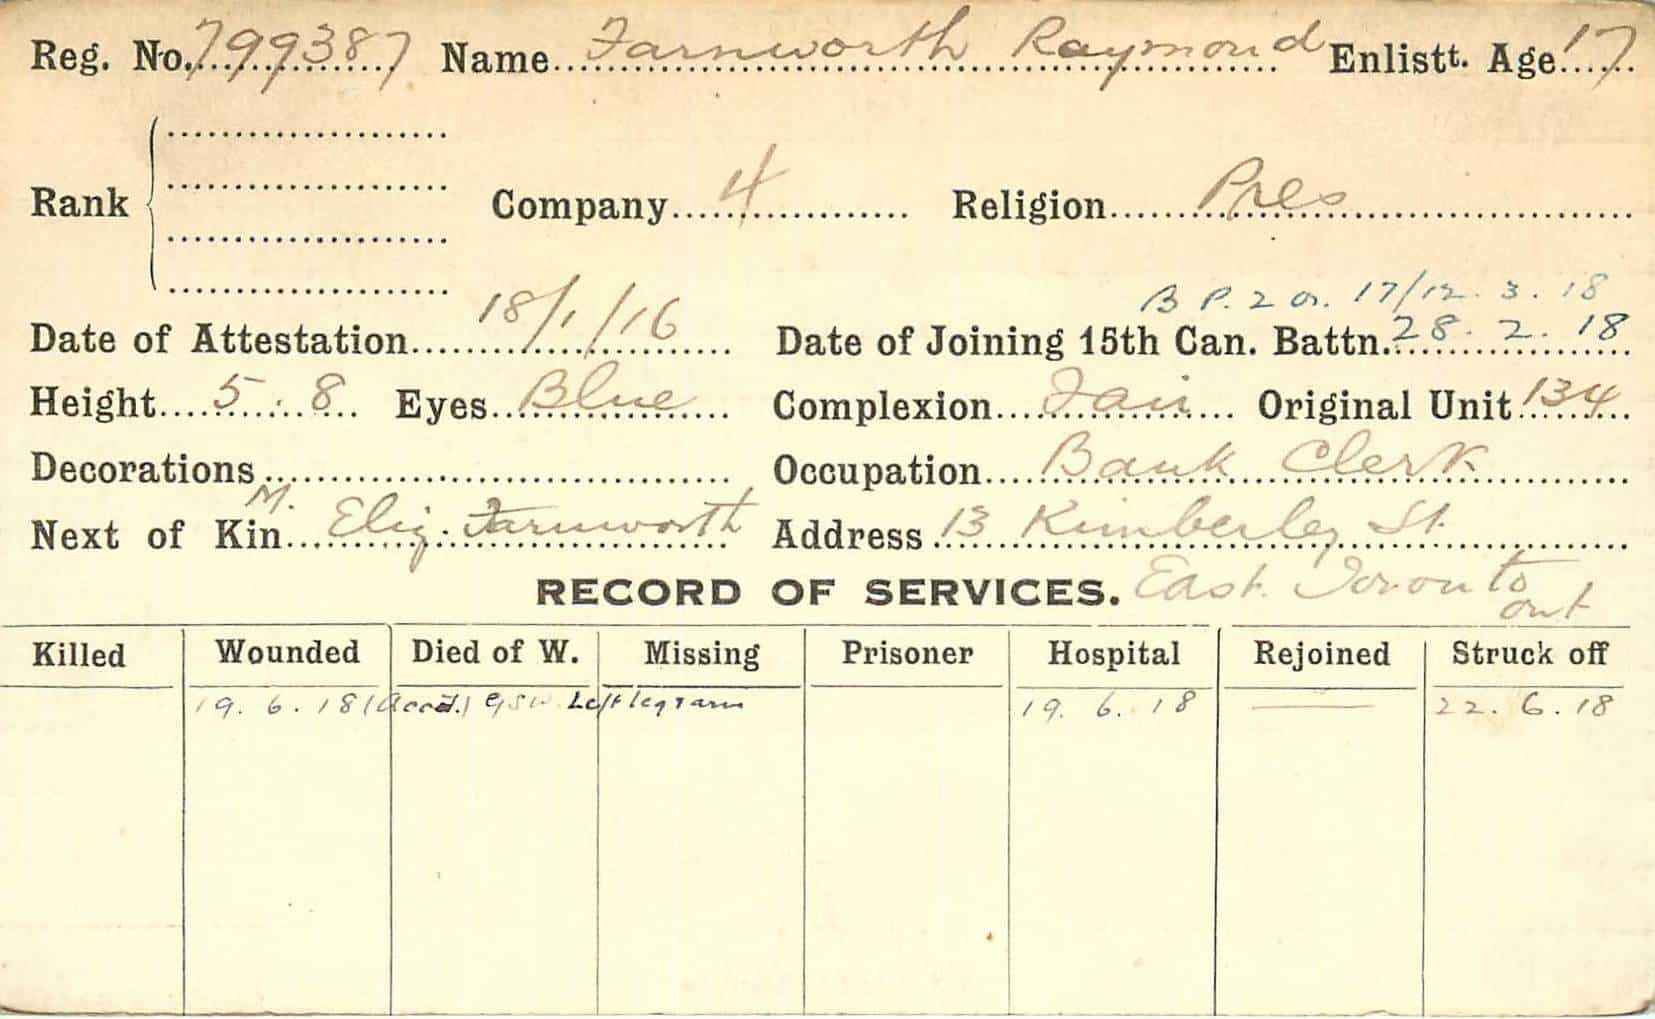 Reg. No. 799387 Name Farnworth Raymond Enlistt. Age 17
Rank Company 4 Religion Pres
B P. 2 Or. 17/12. 3. 18
Date of Attestation 18/1/16 Date of Joining 15th Can. Battn. 28. 2. 18
Height 5. 8 Eyes Blue Complexion Fair Original Unit 134
Decorations Occupation Bank Clerk
M.
Next of Kin Eliz. Farnworth Address 13 Kimberley St.
RECORD OF SERVICES. East. Toronto
ont
Killed Wounded Died of W. Missing Prisoner Hospital Rejoined Struck off
19. 6. 18 (Accd.) GSW Left leg & arm 19. 6. 18 22. 6. 18